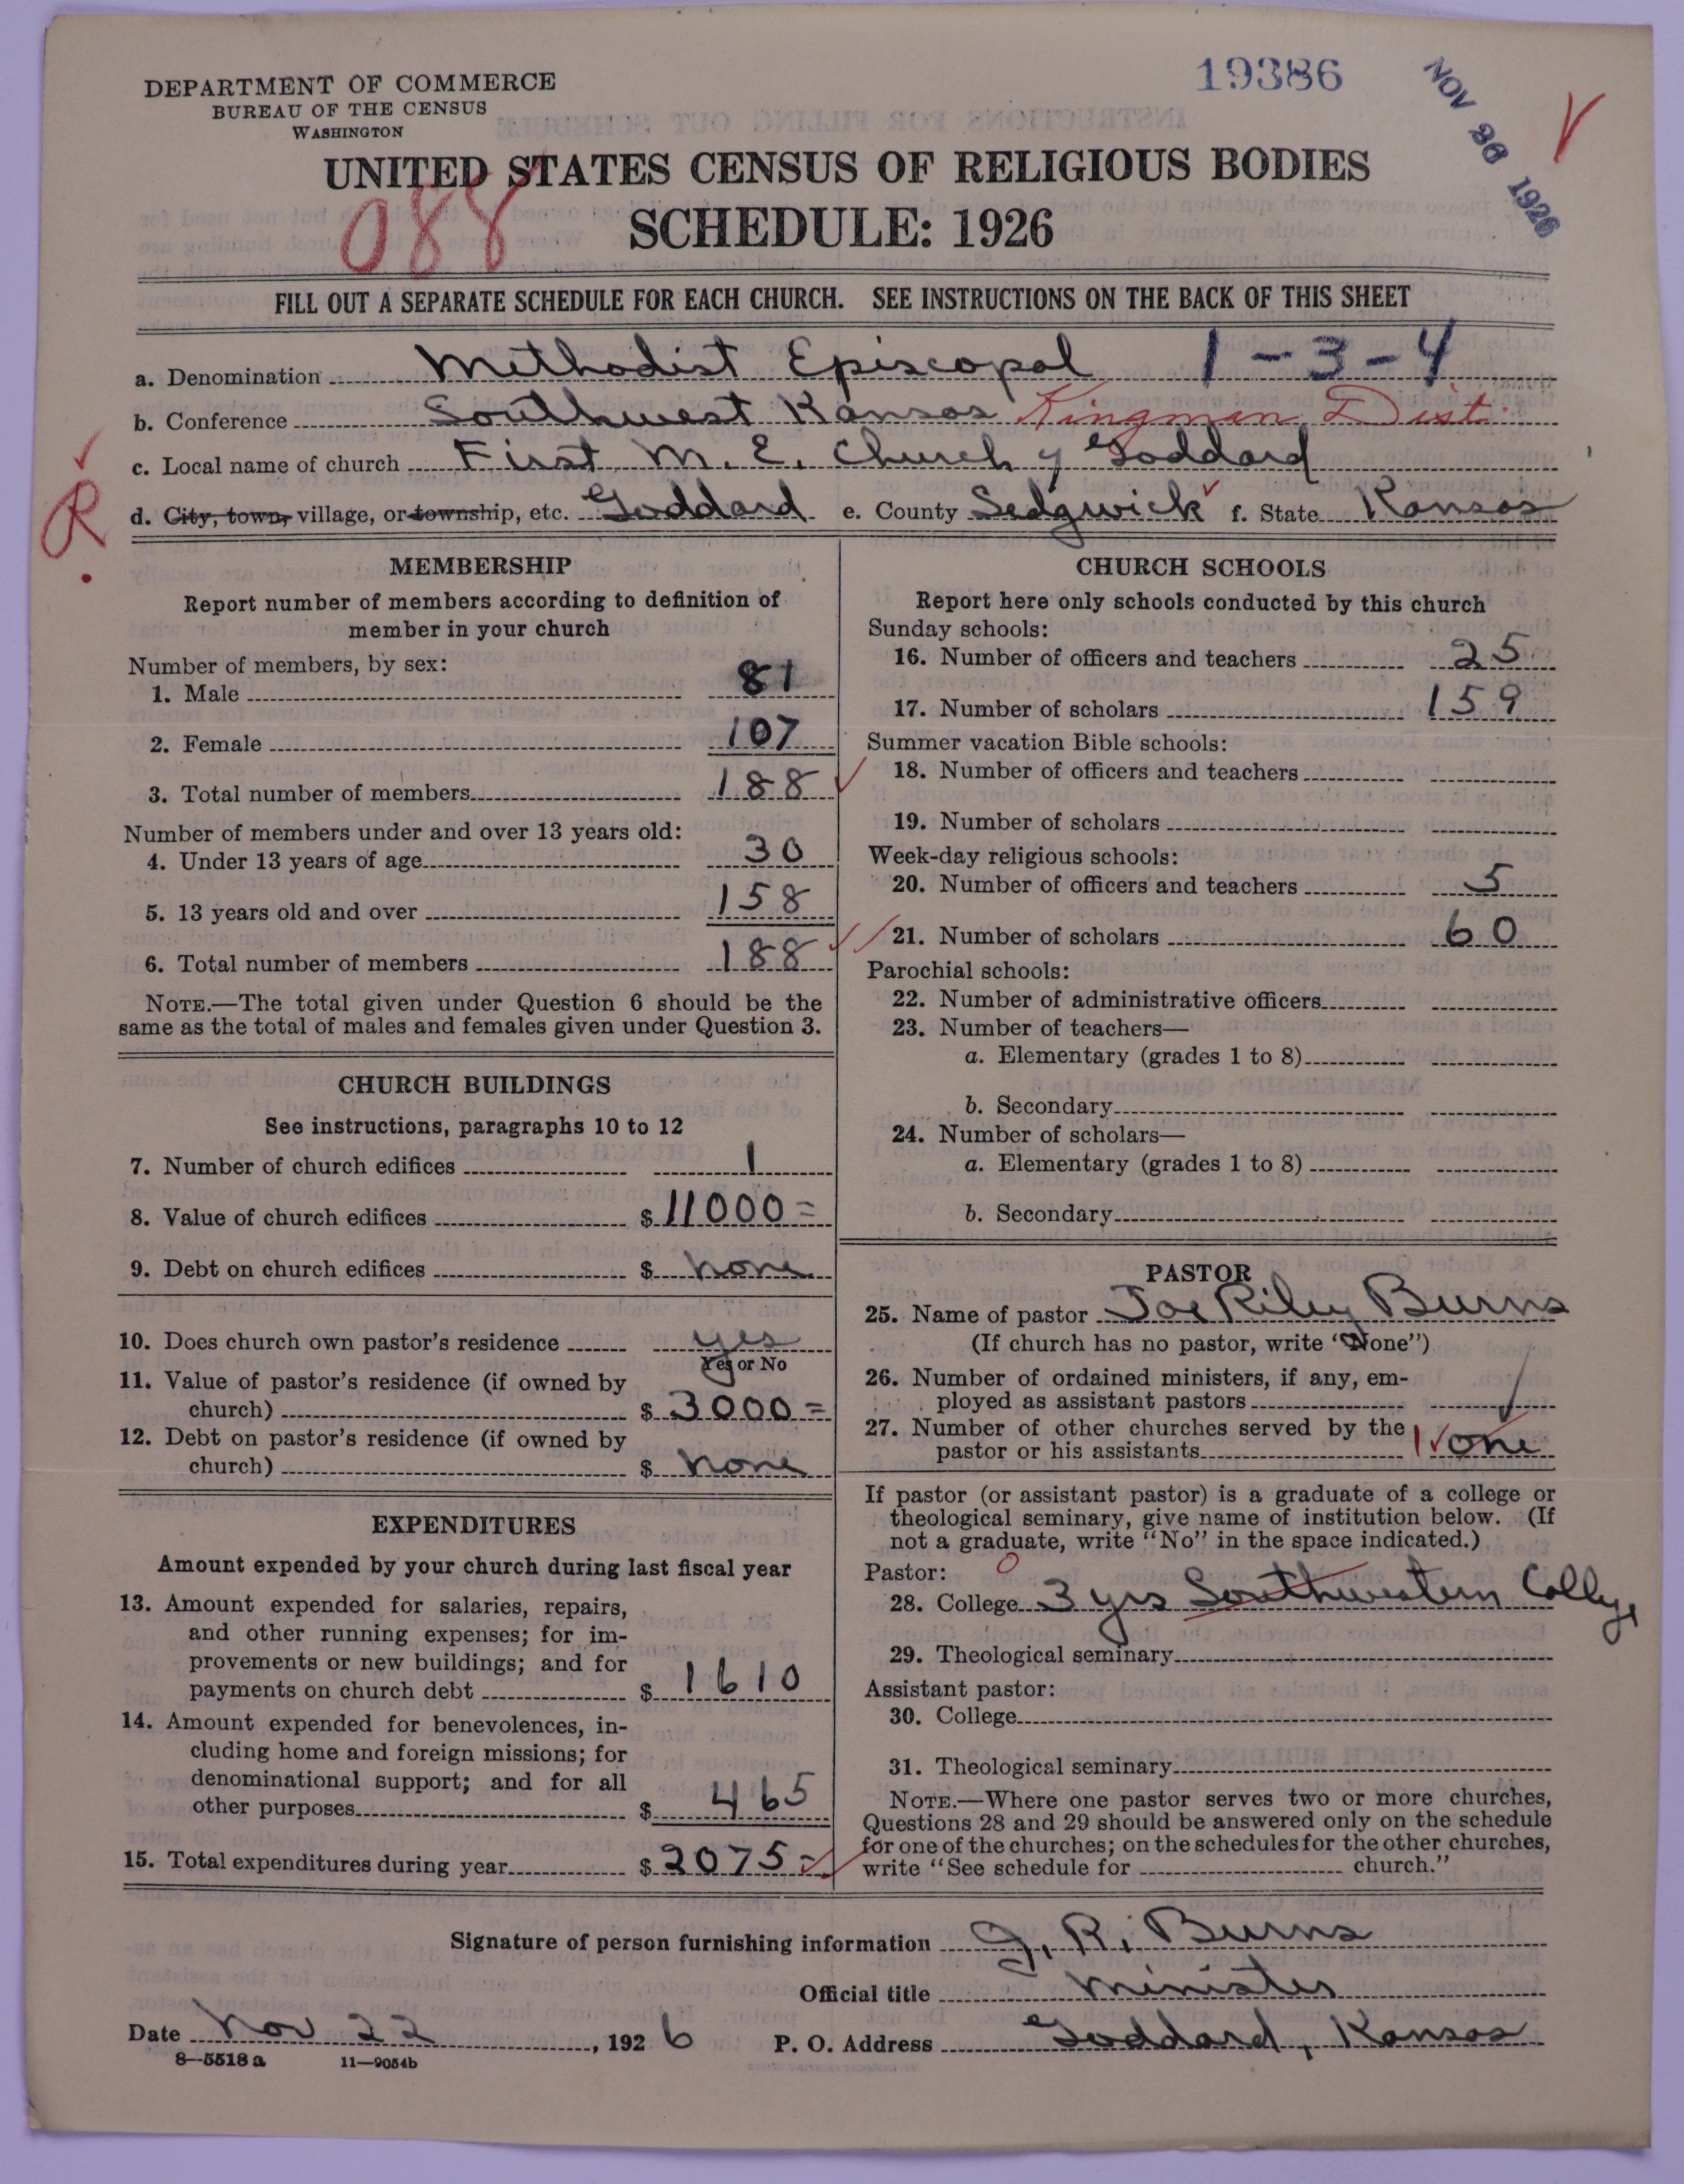 19386
NOV 26 1926
DEPARTMENT OF COMMERCE
BUREAU OF THE CENSUS
WASHINGTON
UNITED STATES CENSUS OF RELIGIOUS BODIES
088
SCHEDULE: 1926
FILL OUT A SEPARATE SCHEDULE FOR EACH CHURCH. SEE INSTRUCTIONS ON THE BACK OF THIS SHEET
a. Denomination Methodist Episcopal 1-3-4
b. Conference Southwest Kansas Kingman Dist.
c. Local name of church First M. E. Church of Goddard
R
d. City, town, village, or township, etc. Goddard e. County Sedgwick f. State Kansas
MEMBERSHIP
Report number of members according to definition of
member in your church
Number of members, by sex:
1. Male 81
2. Female 107
3. Total number of members 188
Number of members under and over 13 years old:
4. Under 13 years of age 30
5. 13 years old and over 158
6. Total number of members 188
NOTE.—The total given under Question 6 should be the
same as the total of males and females given under Question 3.
CHURCH BUILDINGS
See instructions, paragraphs 10 to 12
7. Number of church edifices 1
8. Value of church edifices $ 11000=
9. Debt on church edifices $ none
10. Does church own pastor's residence yes
Yes or No
11. Value of pastor's residence (if owned by
church) $ 3000=
12. Debt on pastor's residence (if owned by
church) $ none
EXPENDITURES
Amount expended by your church during last fiscal year
13. Amount expended for salaries, repairs,
and other running expenses; for im-
provements or new buildings; and for
payments on church debt $ 1610
14. Amount expended for benevolences, in-
cluding home and foreign missions; for
denominational support; and for all
other purposes $ 465
15. Total expenditures during year $ 2075=
CHURCH SCHOOLS
Report here only schools conducted by this church
Sunday schools:
16. Number of officers and teachers 25
17. Number of scholars 159
Summer vacation Bible schools:
18. Number of officers and teachers
19. Number of scholars
Week-day religious schools:
20. Number of officers and teachers 5
21. Number of scholars 60
Parochial schools:
22. Number of administrative officers
23. Number of teachers—
a. Elementary (grades 1 to 8)
b. Secondary
24. Number of scholars—
a. Elementary (grades 1 to 8)
b. Secondary
PASTOR
25. Name of pastor Joe Riley Burns
(If church has no pastor, write "None")
26. Number of ordained ministers, if any, em-
ployed as assistant pastors
27. Number of other churches served by the
pastor or his assistants 1 one
If pastor (or assistant pastor) is a graduate of a college or
theological seminary, give name of institution below. (If
not a graduate, write "No" in the space indicated.)
Pastor: 0
28. College 3 yrs Southwestern College
29. Theological seminary
Assistant pastor:
30. College
31. Theological seminary
NOTE.—Where one pastor serves two or more churches,
Questions 28 and 29 should be answered only on the schedule
for one of the churches; on the schedules for the other churches,
write "See schedule for church."
Signature of person furnishing information J. R. Burns
Official title Minister
Date Nov 22, 1926 P. O. Address Goddard, Kansas
8—5518a 11—9054b